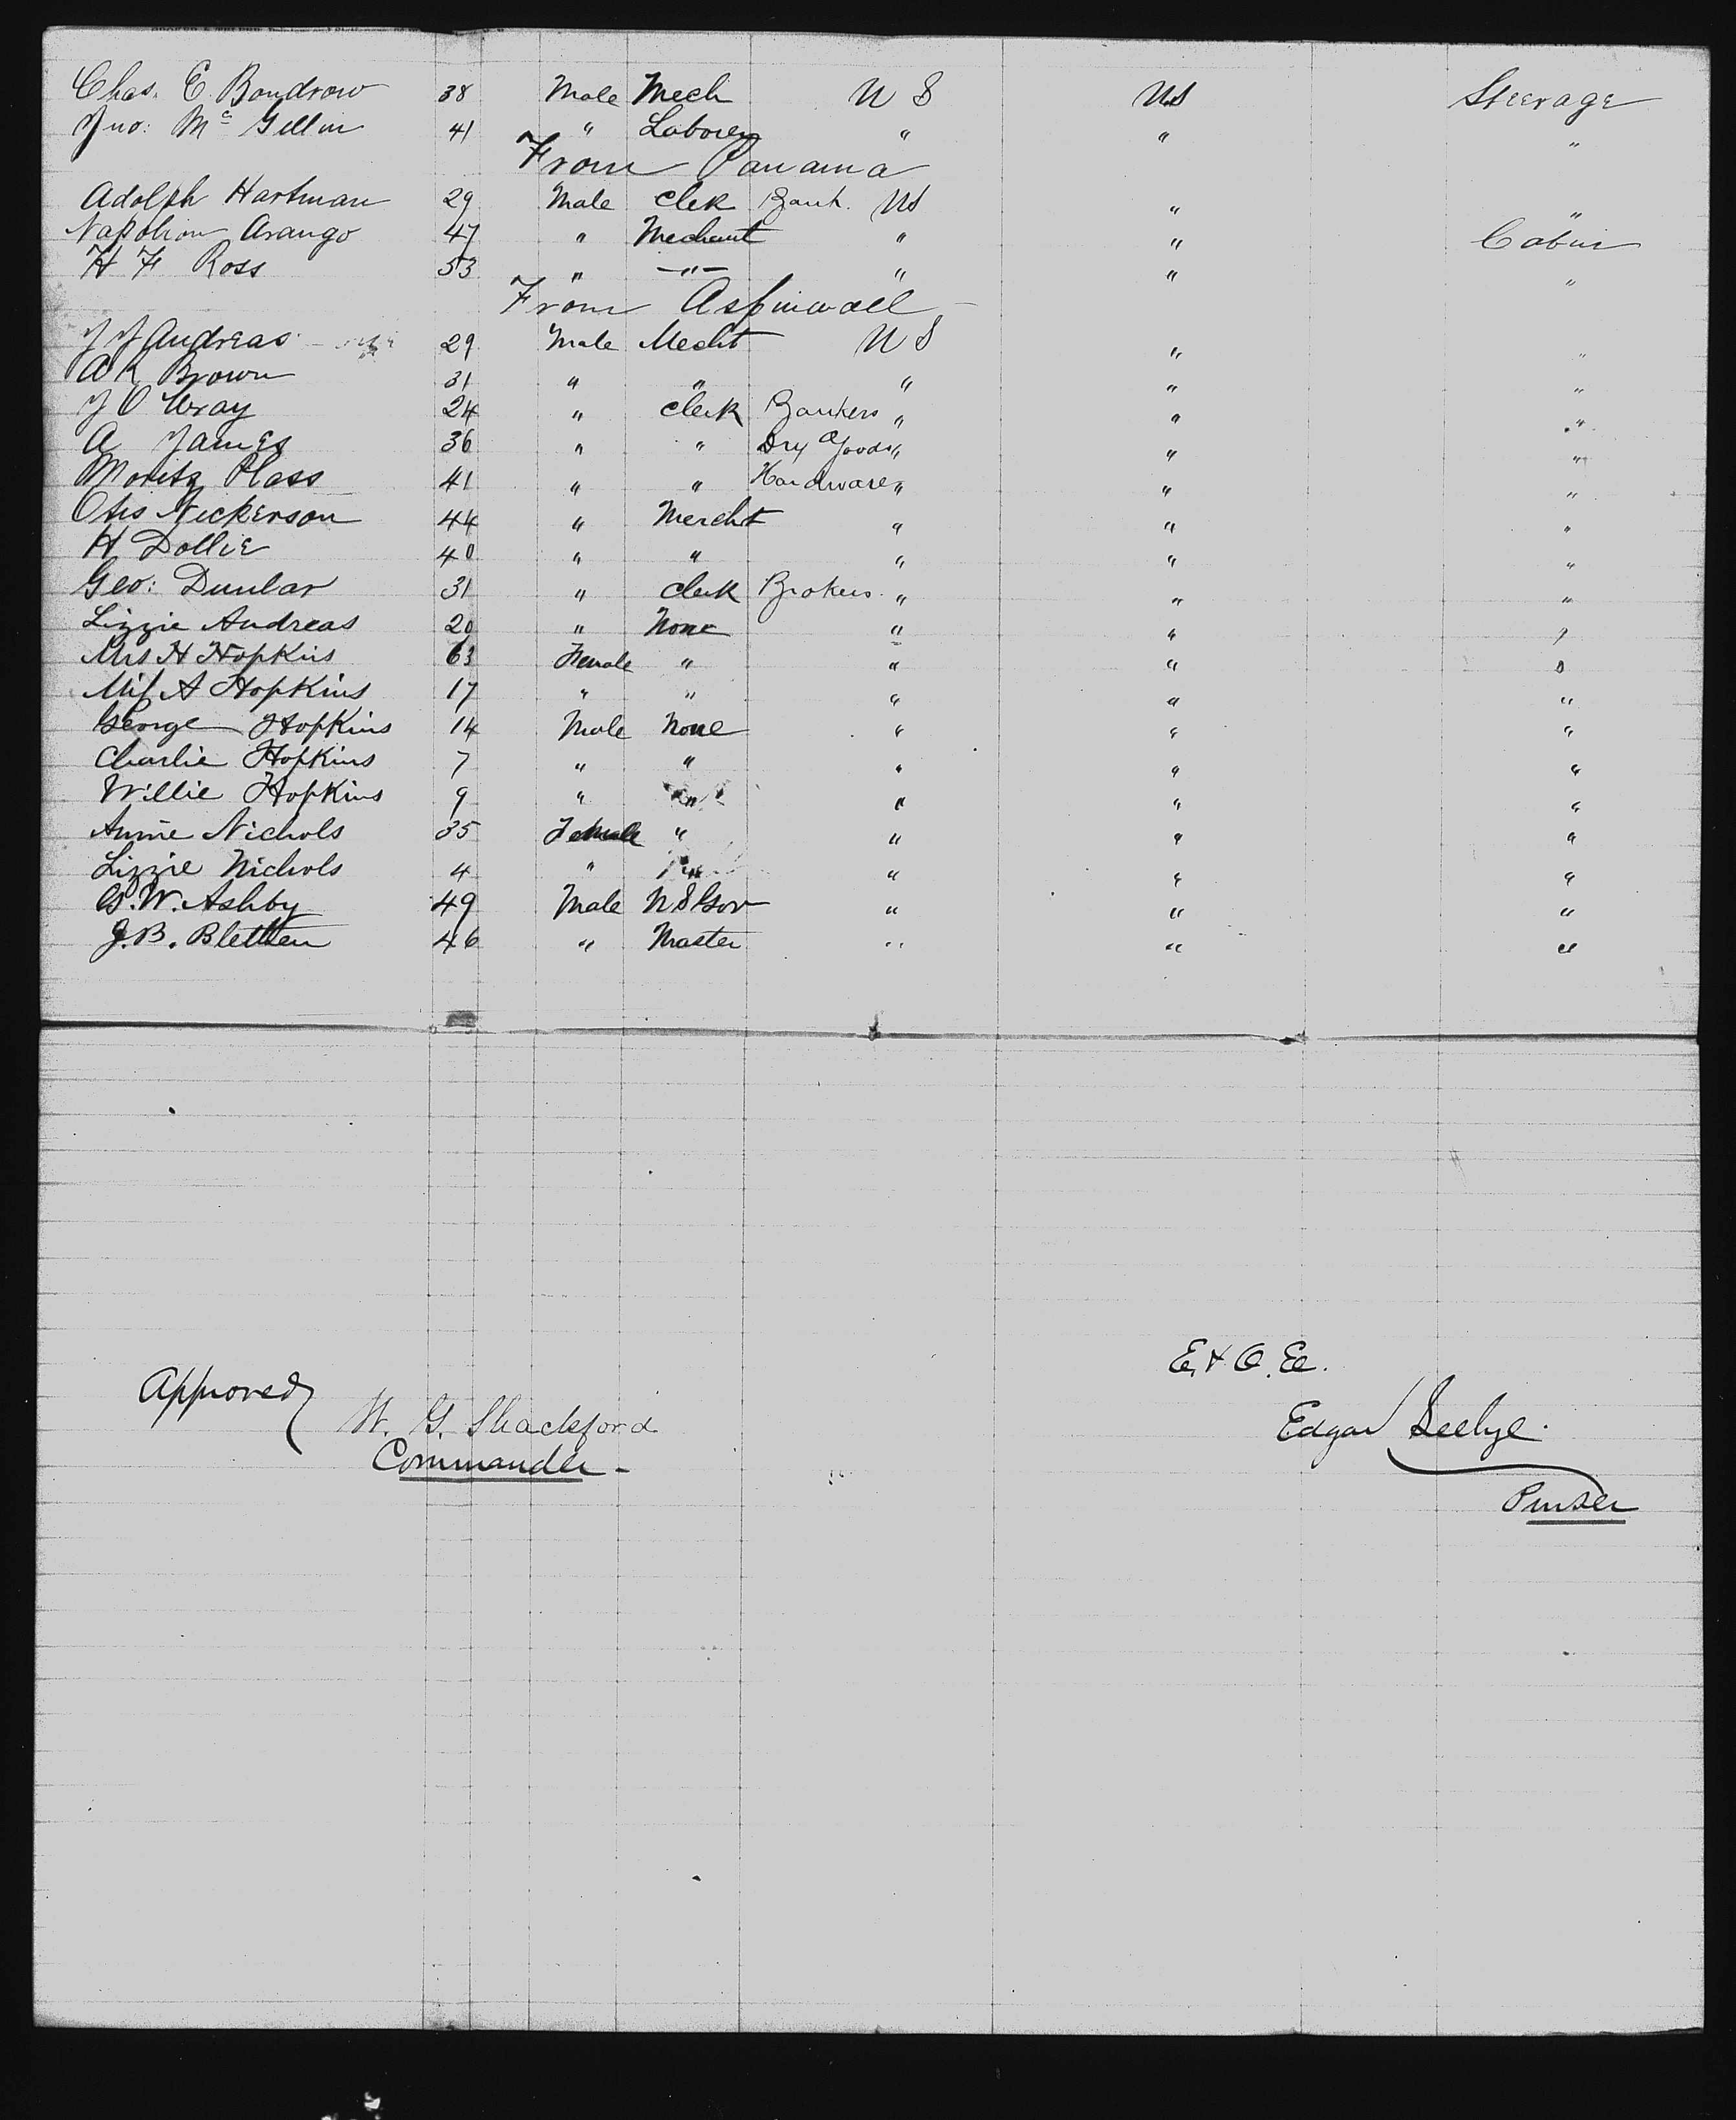 Chas. E. Boudrow 38 Male Mech U S US Steerage
Jno: Mc Gillin 41 " Laborer " " "
From Panama
Adolph Hartman 29 Male Clek Bank. US " "
Napolion Arango 47 " Mechant " " Cabin
H F Ross 53 " —"— " " "
From Aspinwall —
J J Andreas 29 Male Mecht U S " "
A K Brown 31 " " " " "
J O Wray 24 " Clerk Bankers " " "
A James 36 " " Dry Goods " " "
Moritz Plass 41 " " Hardware " " "
Otis Nickerson 44 " Mercht " " "
H Dollie 40 " " " " "
Geo: Dunbar 31 " Clerk Brokers " " "
Lizzie Andreas 20 " None " " "
Mrs H Hopkins 63 Female " " " "
Miss A Hopkins 17 " " " " "
George Hopkins 14 Male None " " "
Charlie Hopkins 7 " " " " "
Willie Hopkins 9 " " " " "
Annie Nichols 35 Female " " " "
Lizzie Nichols 4 " " " " "
G. W. Ashby 49 Male U S Gov " " "
J. B. Blethen 46 " Master " " "
E. & O. E.
Approved
W. G. Shackford
Commander -
Edgar Seelye.
Purser